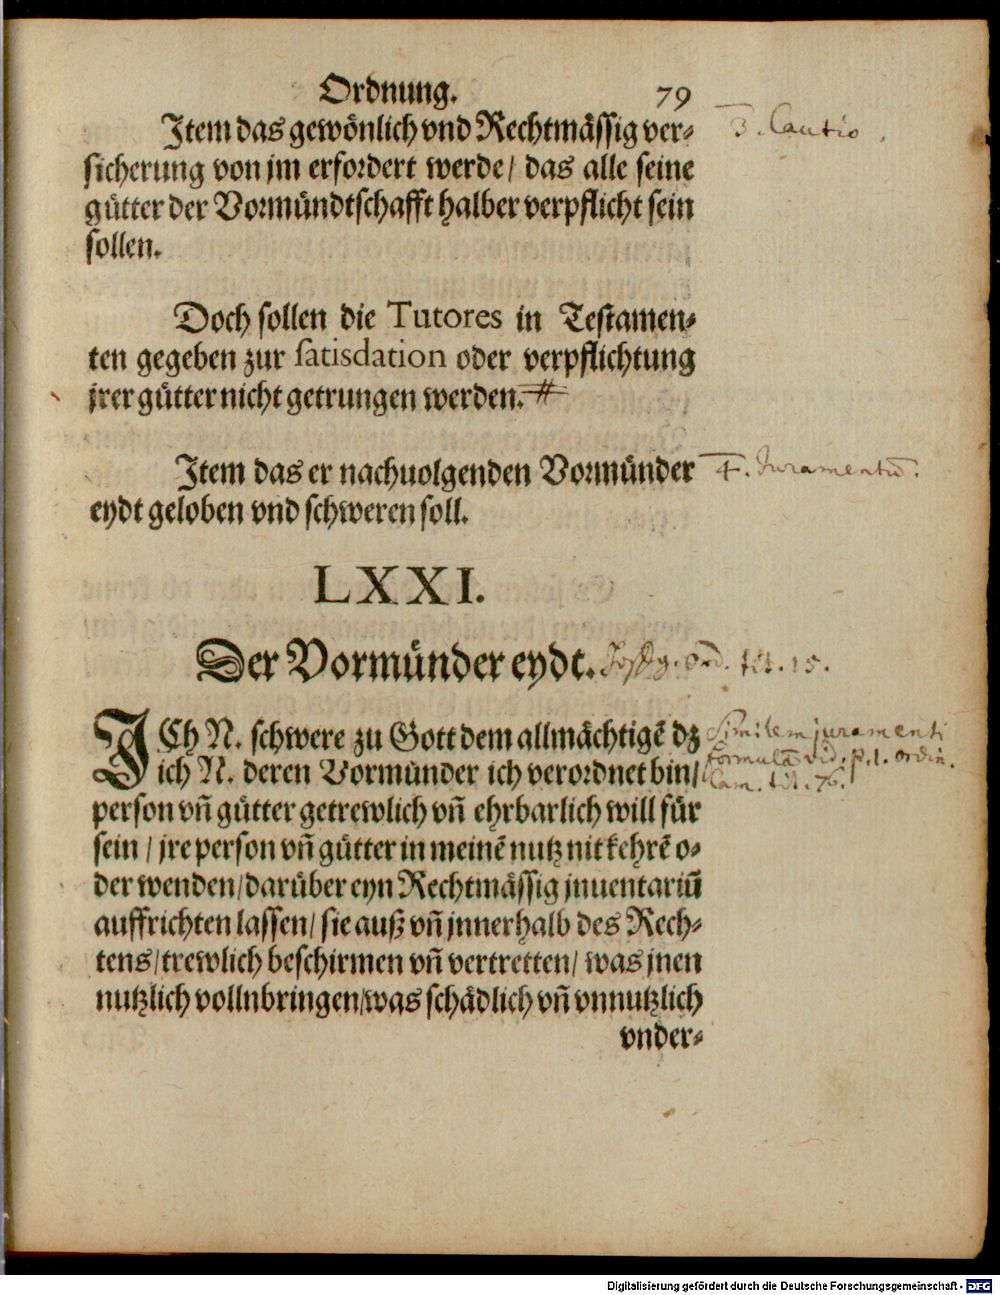 Ordnung. 79
Item das gewönlich vnd Rechtmässig ver-
sicherung von jm erfordert werde / das alle seine
gütter der Vormündtschafft halber verpflicht sein
sollen.
3. Cautio.
Doch sollen die Tutores in Testamen-
ten gegeben zur satisdation oder verpflichtung
jrer gütter nicht getrungen werden. #
Item das er nachuolgenden Vormünder
eydt geloben vnd schweren soll.
4. Juramentū.
LXXI.
Der Vormünder eydt.
ord. tit. 15.
ICh N. schwere zu Gott dem allmächtigē dz
ich N. deren Vormünder ich verordnet bin /
person vn̄ gütter getrewlich vn̄ ehrbarlich will für
sein / jre person vn̄ gütter in meinē nutz nit kehrē o-
der wenden / darüber eyn Rechtmässig jnuentariū
auffrichten lassen / sie auß vn̄ jnnerhalb des Rech-
tens / trewlich beschirmen vn̄ vertretten / was jnen
nutzlich vollnbringen / was schädlich vn̄ vnnutzlich
vnder-
Similem juramenti
formulā vid. p. 1. ordin.
Cam. tit. 76.
Digitalisierung gefördert durch die Deutsche Forschungsgemeinschaft - DFG